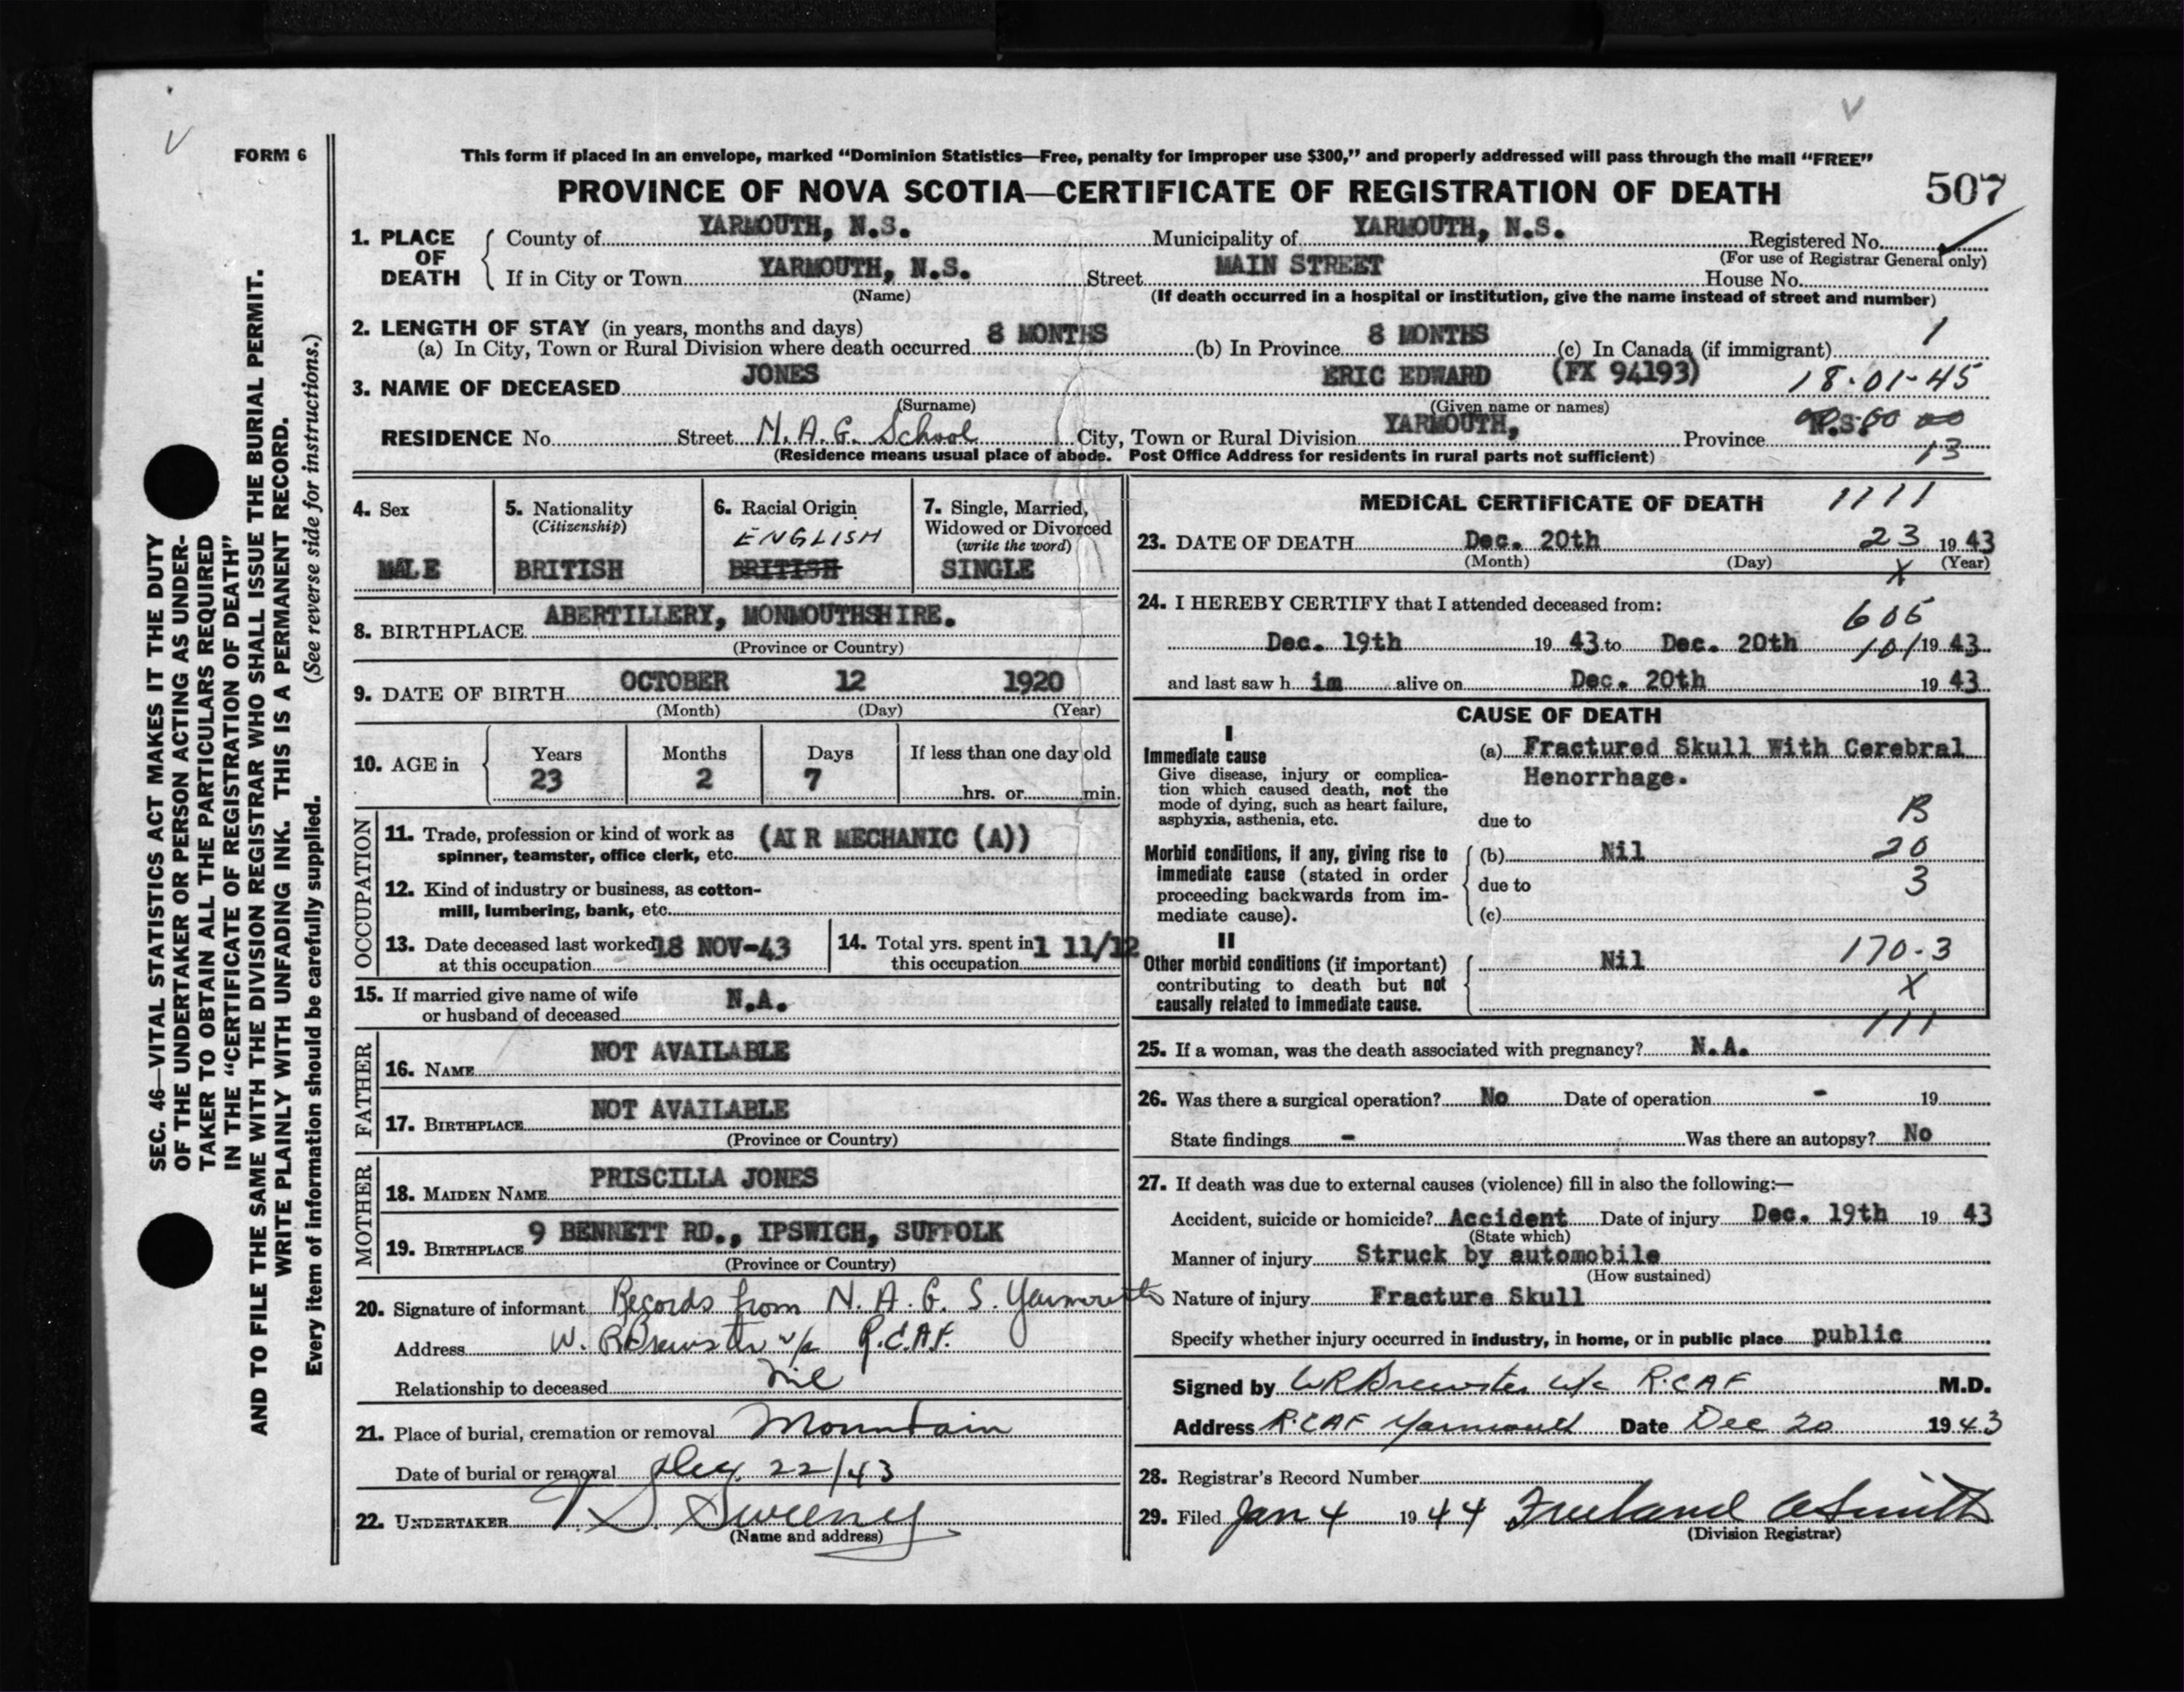 FORM 6
This form if placed in an envelope, marked “Dominion Statistics—Free, penalty for improper use $300,” and properly addressed will pass through the mail “FREE”
PROVINCE OF NOVA SCOTIA—CERTIFICATE OF REGISTRATION OF DEATH 507
1. PLACE OF DEATH County of YARMOUTH, N.S. Municipality of YARMOUTH, N.S. Registered No.
(For use of Registrar General only)
If in City or Town YARMOUTH, N.S. Street MAIN STREET House No.
(Name) (If death occurred in a hospital or institution, give the name instead of street and number)
2. LENGTH OF STAY (in years, months and days)
(a) In City, Town or Rural Division where death occurred 8 MONTHS (b) In Province 8 MONTHS (c) In Canada (if immigrant) 1
3. NAME OF DECEASED JONES ERIC EDWARD (FX 94193) 18-01-45
(Surname) (Given name or names)
RESIDENCE No. Street N.A.G. School City, Town or Rural Division YARMOUTH, Province N.S.
13
(Residence means usual place of abode. Post Office Address for residents in rural parts not sufficient)
4. Sex
MALE
5. Nationality
(Citizenship)
BRITISH
6. Racial Origin
ENGLISH
BRITISH
7. Single, Married,
Widowed or Divorced
(write the word)
SINGLE
8. BIRTHPLACE ABERTILLERY, MONMOUTHSHIRE.
(Province or Country)
9. DATE OF BIRTH OCTOBER 12 1920
(Month) (Day) (Year)
10. AGE in Years Months Days If less than one day old
23 2 7 hrs. or min.
OCCUPATION
11. Trade, profession or kind of work as (AIR MECHANIC (A))
spinner, teamster, office clerk, etc.
12. Kind of industry or business, as cotton-
mill, lumbering, bank, etc.
13. Date deceased last worked 18 NOV-43
at this occupation
14. Total yrs. spent in 1 11/12
this occupation
15. If married give name of wife N.A.
or husband of deceased
FATHER
16. NAME NOT AVAILABLE
17. BIRTHPLACE NOT AVAILABLE
(Province or Country)
MOTHER
18. MAIDEN NAME PRISCILLA JONES
19. BIRTHPLACE 9 BENNETT RD., IPSWICH, SUFFOLK
(Province or Country)
20. Signature of informant Records from N.A.G.S. Yarmouth
Address W. R Brewster w/c R.C.A.F.
Relationship to deceased Nil
21. Place of burial, cremation or removal Mountain
Date of burial or removal Dec 22/43
22. UNDERTAKER V. S. Sweeny
(Name and address)
MEDICAL CERTIFICATE OF DEATH 1111
23. DATE OF DEATH Dec. 20th 23 1943
(Month) (Day) X (Year)
24. I HEREBY CERTIFY that I attended deceased from: 605
Dec. 19th 1943 to Dec. 20th 101 1943
and last saw him alive on Dec. 20th 1943
CAUSE OF DEATH
I
Immediate cause
Give disease, injury or complica-
tion which caused death, not the
mode of dying, such as heart failure,
asphyxia, asthenia, etc.
(a) Fractured Skull With Cerebral
Henorrhage.
due to B
Morbid conditions, if any, giving rise to
immediate cause (stated in order
proceeding backwards from im-
mediate cause).
(b) Nil 20
due to 3
(c)
II
Other morbid conditions (if important)
contributing to death but not
causally related to immediate cause.
Nil 170-3
X
111
25. If a woman, was the death associated with pregnancy? N.A.
26. Was there a surgical operation? No Date of operation - 19
State findings - Was there an autopsy? No
27. If death was due to external causes (violence) fill in also the following:—
Accident, suicide or homicide? Accident Date of injury Dec. 19th 1943
(State which)
Manner of injury Struck by automobile
(How sustained)
Nature of injury Fracture Skull
Specify whether injury occurred in industry, in home, or in public place public
Signed by WR Brewster w/c R.C.A.F M.D.
Address R.C.A.F Yarmouth Date Dec 20 1943
28. Registrar's Record Number
29. Filed Jan 4 1944 Freeland A Smith
(Division Registrar)
SEC. 46—VITAL STATISTICS ACT MAKES IT THE DUTY
OF THE UNDERTAKER OR PERSON ACTING AS UNDER-
TAKER TO OBTAIN ALL THE PARTICULARS REQUIRED
IN THE “CERTIFICATE OF REGISTRATION OF DEATH”
AND TO FILE THE SAME WITH THE DIVISION REGISTRAR WHO SHALL ISSUE THE BURIAL PERMIT.
WRITE PLAINLY WITH UNFADING INK. THIS IS A PERMANENT RECORD.
Every item of information should be carefully supplied. (See reverse side for instructions.)